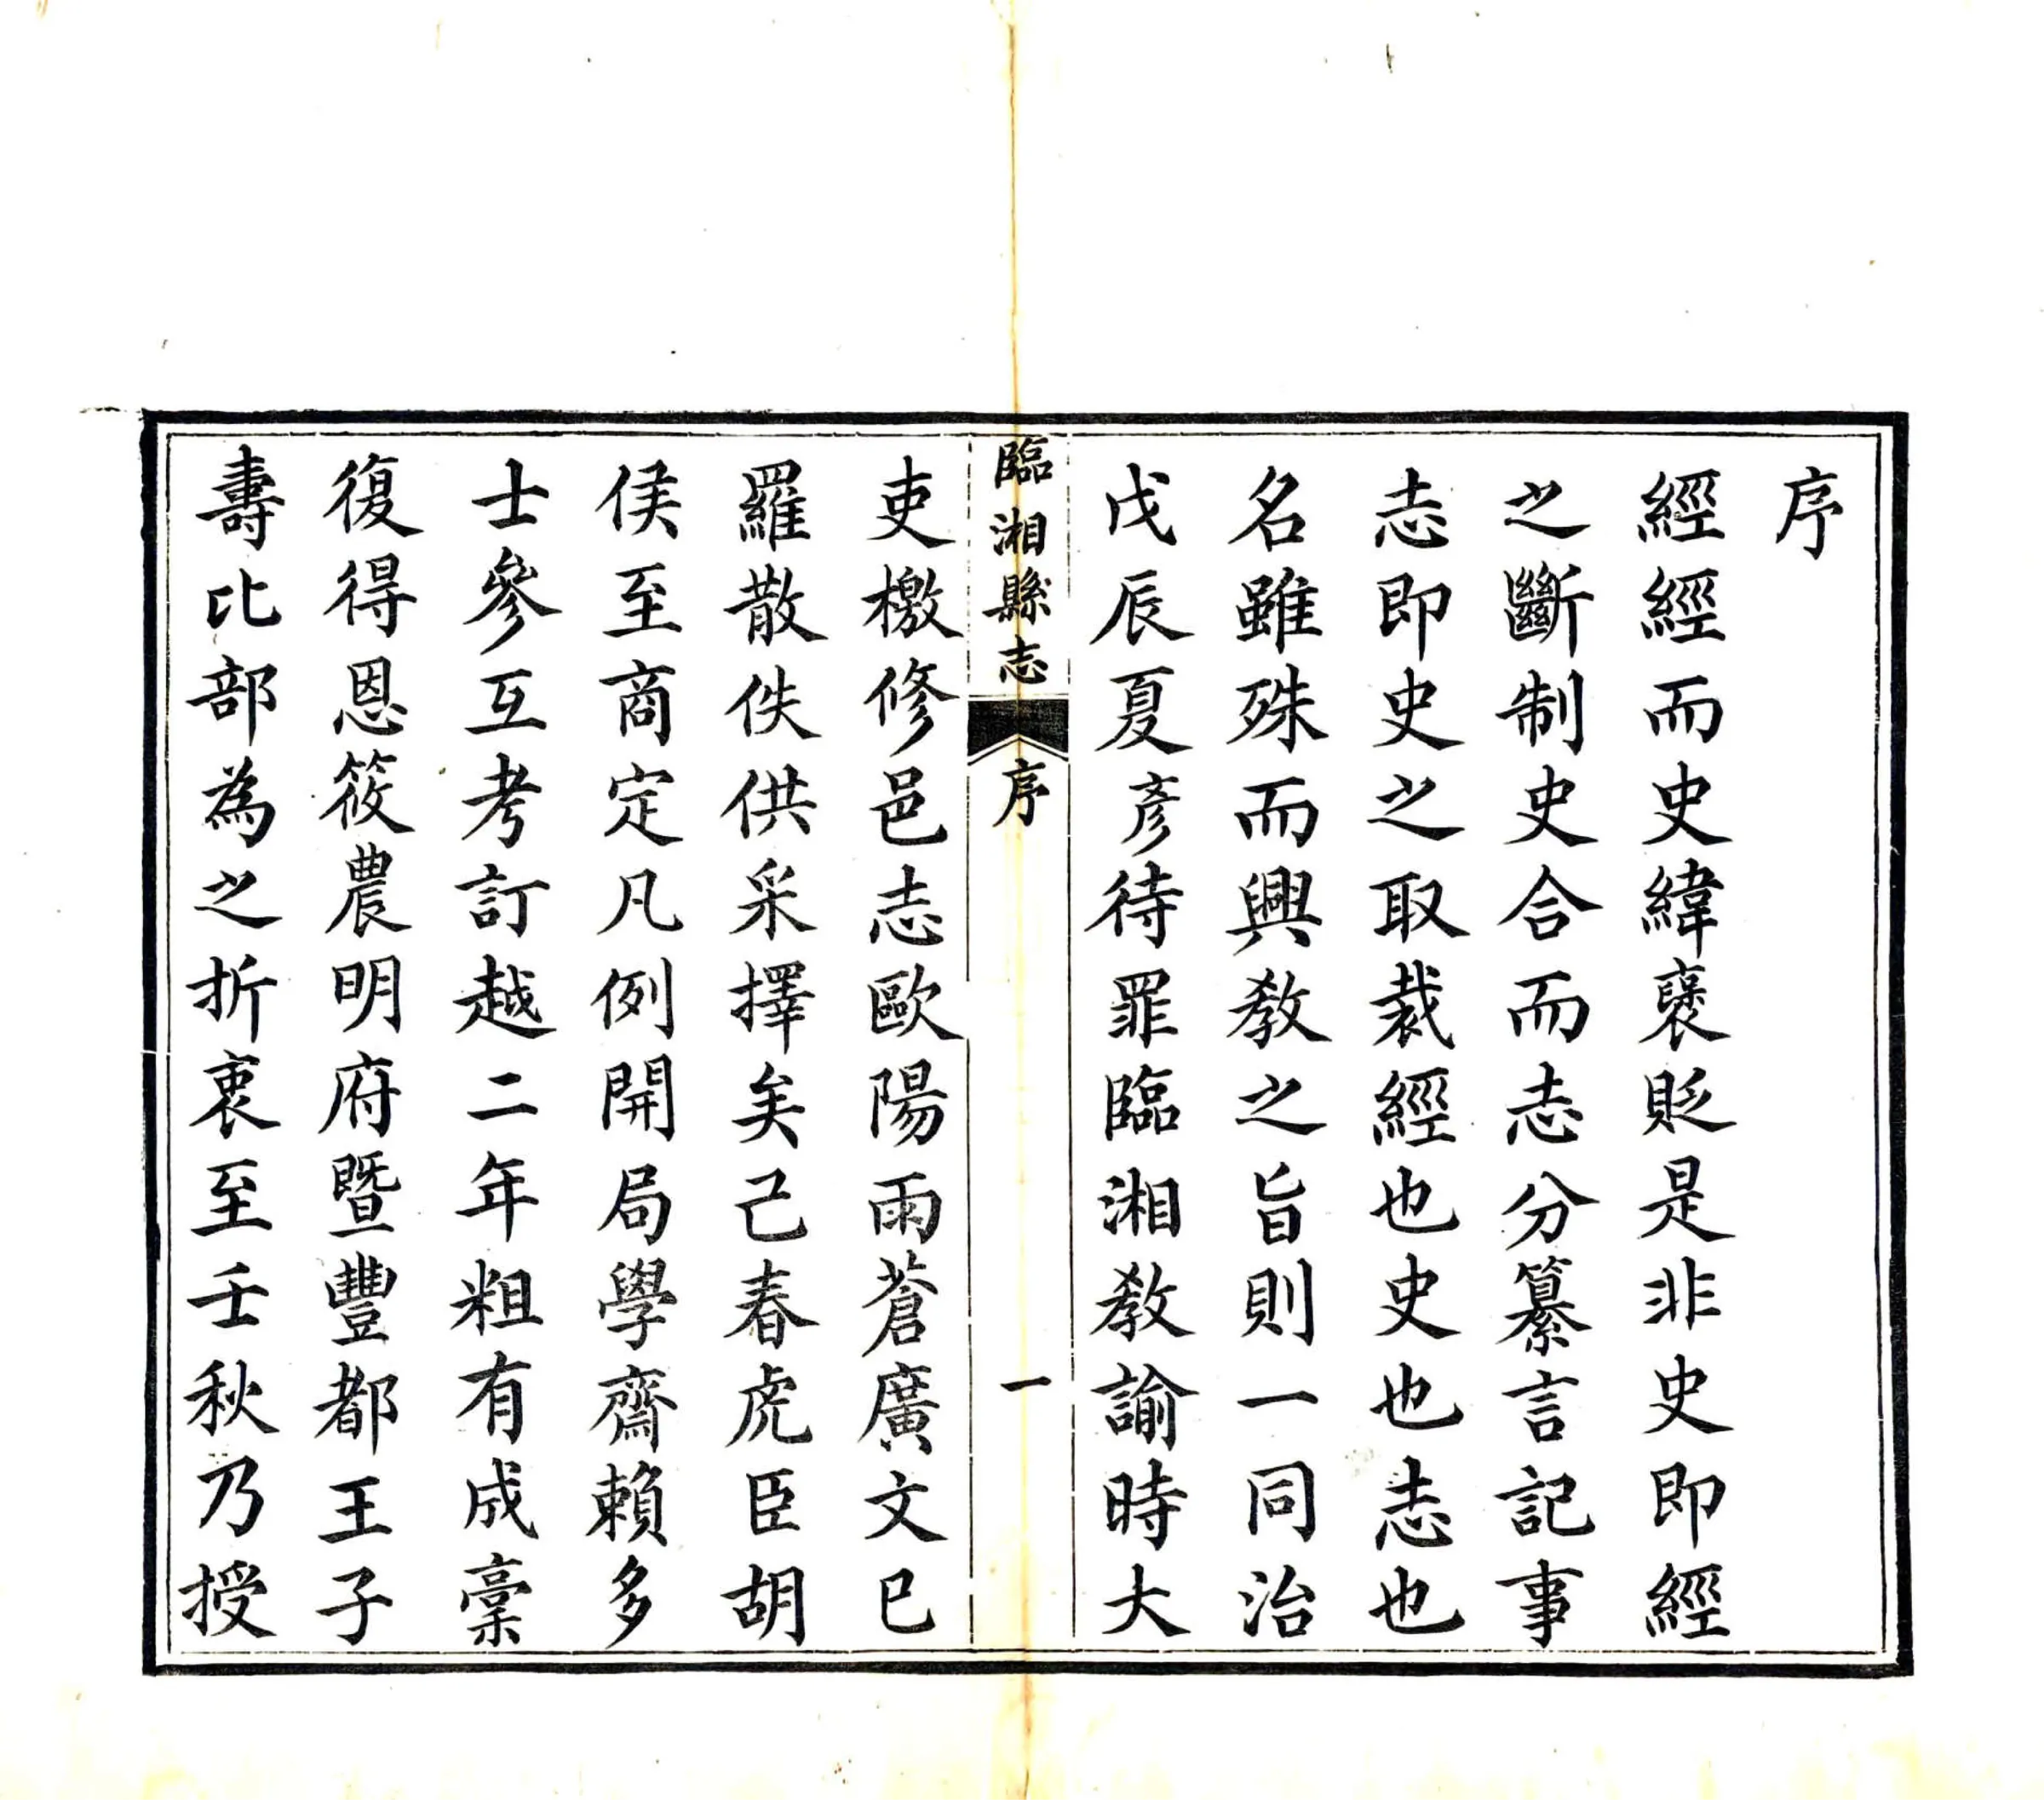 序
經經而史緯襃貶是非史即經
之斷制史合而志分纂言記事
志即史之取裁經也史也志也
名雖殊而興教之旨則一同治
戊辰夏彥待罪臨湘教諭時大
臨湘縣志
序
一
吏檄修邑志歐陽雨蒼廣文已
羅散佚供采擇矣己春虎臣胡
侯至商定凡例開局學齋賴多
士參互考訂越二年粗有成稾
復得恩筱農明府暨豐都王子
壽比部為之折衷至壬秋乃授